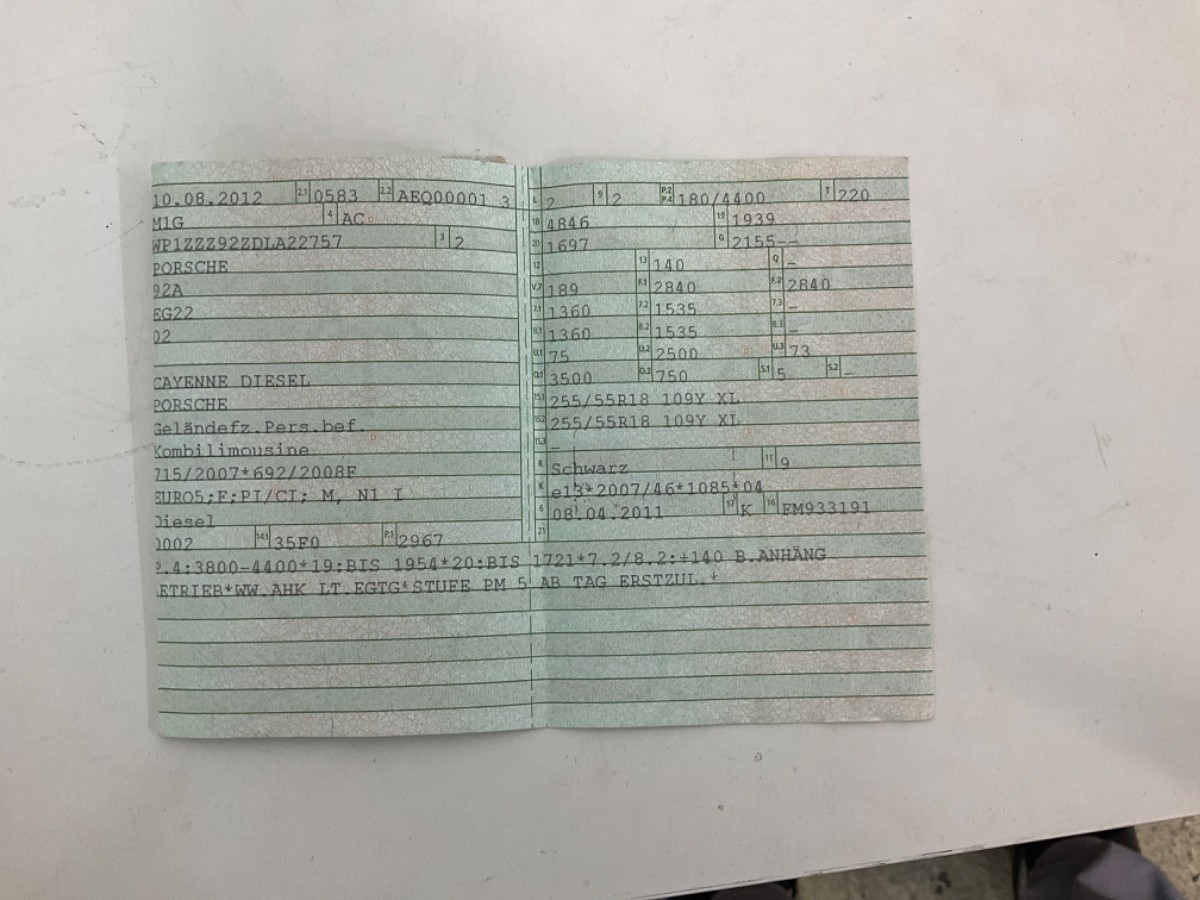 10.08.2012 2.1 0583 2.2 AEQ00001 3
M1G 4 AC
WP1ZZZ92ZDLA22757 3 2
PORSCHE
92A
EG22
02
CAYENNE DIESEL
PORSCHE
Geländefz.Pers.bef.
Kombilimousine
715/2007*692/2008F
EURO5;F;PI/CI; M, N1 I
Diesel
0002 14.1 35F0 P.1 2967
L 2 9 2 P.2 P.4 180/4400 T 220
18 4846 19 1939
20 1697 G 2155--
12 13 140 Q –
V.7 189 F.1 2840 F.2 2840
7.1 1360 7.2 1535 7.3 –
8.1 1360 8.2 1535 8.3 –
U.1 75 U.2 2500 U.3 73
O.1 3500 O.2 750 S.1 5 S.2 –
15.1 255/55R18 109Y XL
15.2 255/55R18 109Y XL
15.3 –
R Schwarz 11 9
K e13*2007/46*1085*04
6 08.04.2011 17 K 16 FM933191
21
P.4:3800-4400*19:BIS 1954*20:BIS 1721*7.2/8.2:+140 B.ANHÄNG
ETRIEB*WW.AHK LT.EGTG*STUFE PM 5 AB TAG ERSTZUL.*